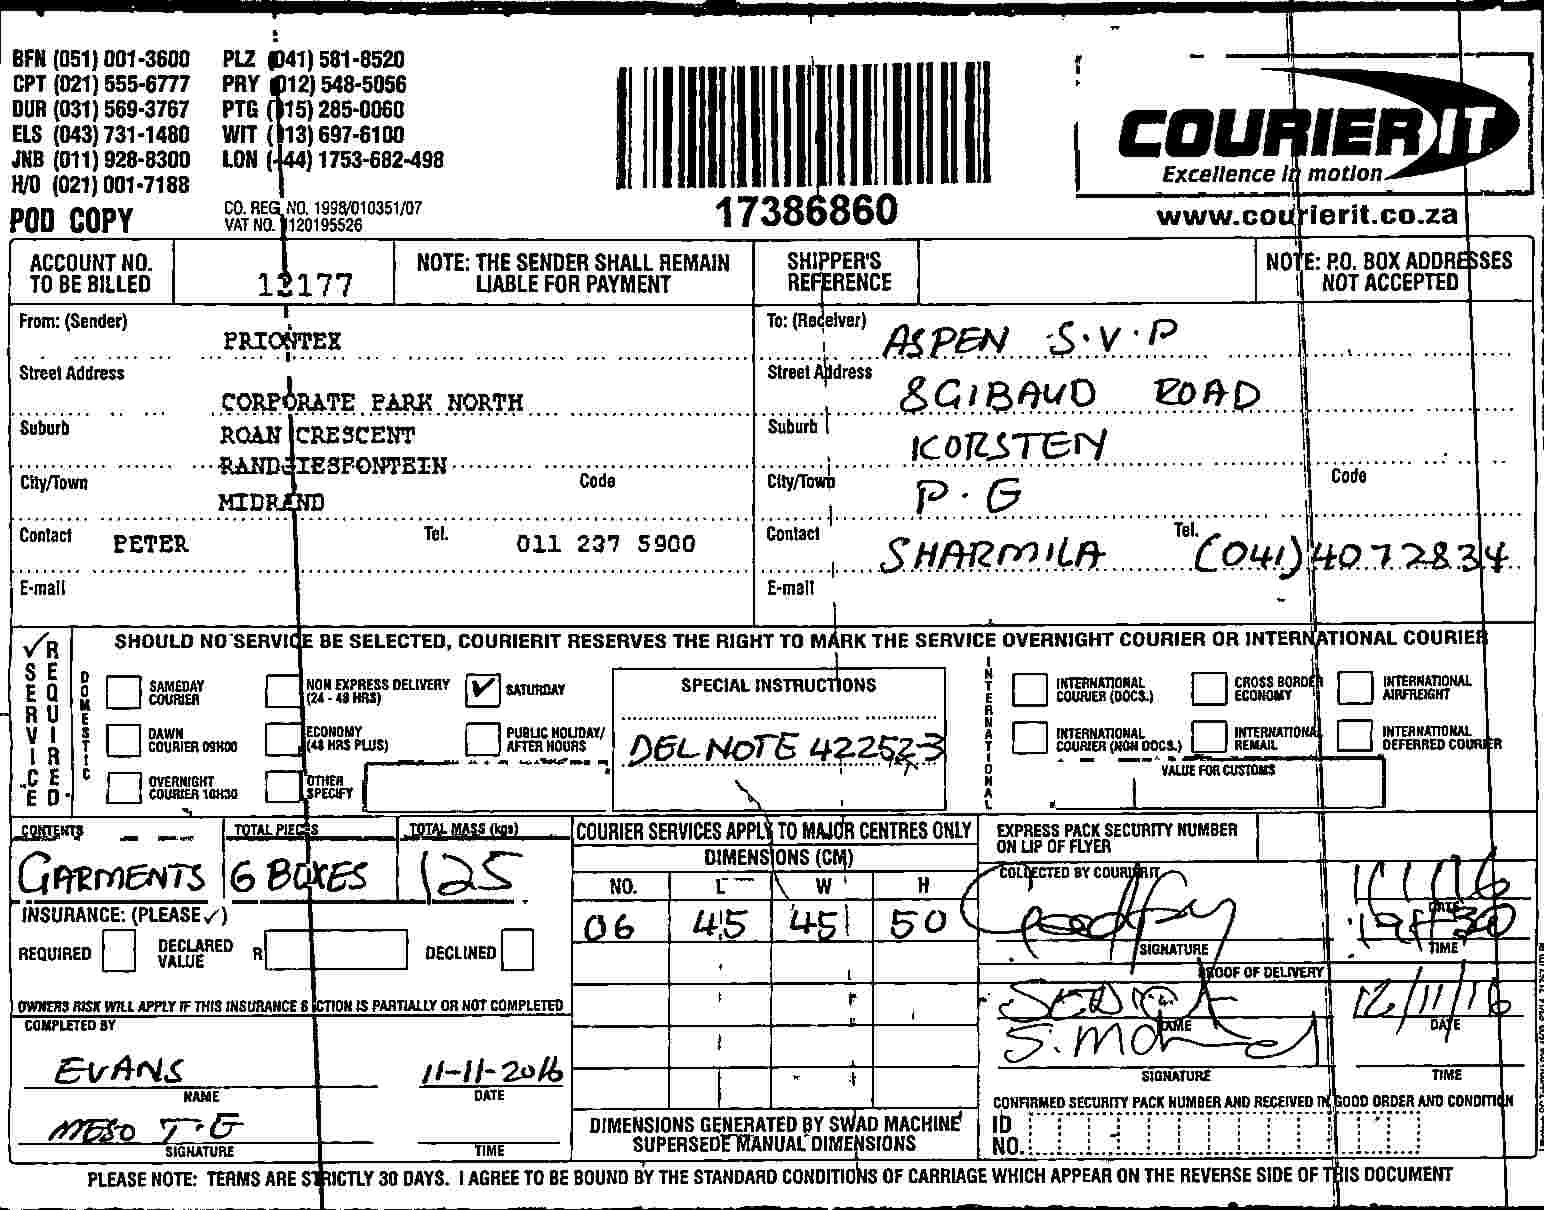 BFN (051) 001-3600 PLZ (041) 581-8520
CPT (021) 555-6777 PRY (012) 548-5056
DUR (031) 569-3767 PTG (015) 285-0060
ELS (043) 731-1480 WIT (013) 697-6100
JNB (011) 928-8300 LON (+44) 1753-682-498
H/O (021) 001-7188
POD COPY
CO. REG. NO. 1998/010351/07
VAT NO. 4120195526
17386860
COURIER IT
Excellence in motion
www.courierit.co.za
ACCOUNT NO. TO BE BILLED 12177
NOTE: THE SENDER SHALL REMAIN LIABLE FOR PAYMENT
SHIPPER'S REFERENCE
NOTE: P.O. BOX ADDRESSES NOT ACCEPTED
From: (Sender) PRIONTEX
Street Address
CORPORATE PARK NORTH
Suburb ROAN CRESCENT
RANDJIESFONTEIN
City/Town MIDRAND Code
Contact PETER Tel. 011 237 5900
E-mail
To: (Receiver) ASPEN S.V.P
Street Address 8 GIBAUD ROAD
Suburb KORSTEN
City/Town P.G Code
Contact SHARMILA Tel. (041) 4072834
E-mail
✓ SERVICE REQUIRED
SHOULD NO SERVICE BE SELECTED, COURIERIT RESERVES THE RIGHT TO MARK THE SERVICE OVERNIGHT COURIER OR INTERNATIONAL COURIER
DOMESTIC
SAMEDAY COURIER
NON EXPRESS DELIVERY (24 - 48 HRS)
✓ SATURDAY
DAWN COURIER 09H00
ECONOMY (48 HRS PLUS)
PUBLIC HOLIDAY/ AFTER HOURS
OVERNIGHT COURIER 10H30
OTHER SPECIFY
SPECIAL INSTRUCTIONS
DEL NOTE 422523
INTERNATIONAL
INTERNATIONAL COURIER (DOCS.)
CROSS BORDER ECONOMY
INTERNATIONAL AIRFREIGHT
INTERNATIONAL COURIER (NON DOCS.)
INTERNATIONAL REMAIL
INTERNATIONAL DEFERRED COURIER
VALUE FOR CUSTOMS
CONTENTS GARMENTS
TOTAL PIECES 6 BOXES
TOTAL MASS (kgs) 125
INSURANCE: (PLEASE ✓)
REQUIRED DECLARED VALUE R DECLINED
OWNERS RISK WILL APPLY IF THIS INSURANCE SECTION IS PARTIALLY OR NOT COMPLETED
COMPLETED BY
EVANS 11-11-2016
NAME DATE
T.G
SIGNATURE TIME
COURIER SERVICES APPLY TO MAJOR CENTRES ONLY
DIMENSIONS (CM)
NO. L W H
06 45 45 50
DIMENSIONS GENERATED BY SWAD MACHINE SUPERSEDE MANUAL DIMENSIONS
EXPRESS PACK SECURITY NUMBER ON LIP OF FLYER
COLLECTED BY COURIERIT
SIGNATURE
DATE
TIME
PROOF OF DELIVERY
12/11/16
NAME DATE
SIGNATURE TIME
CONFIRMED SECURITY PACK NUMBER AND RECEIVED IN GOOD ORDER AND CONDITION
ID NO.
PLEASE NOTE: TERMS ARE STRICTLY 30 DAYS. I AGREE TO BE BOUND BY THE STANDARD CONDITIONS OF CARRIAGE WHICH APPEAR ON THE REVERSE SIDE OF THIS DOCUMENT